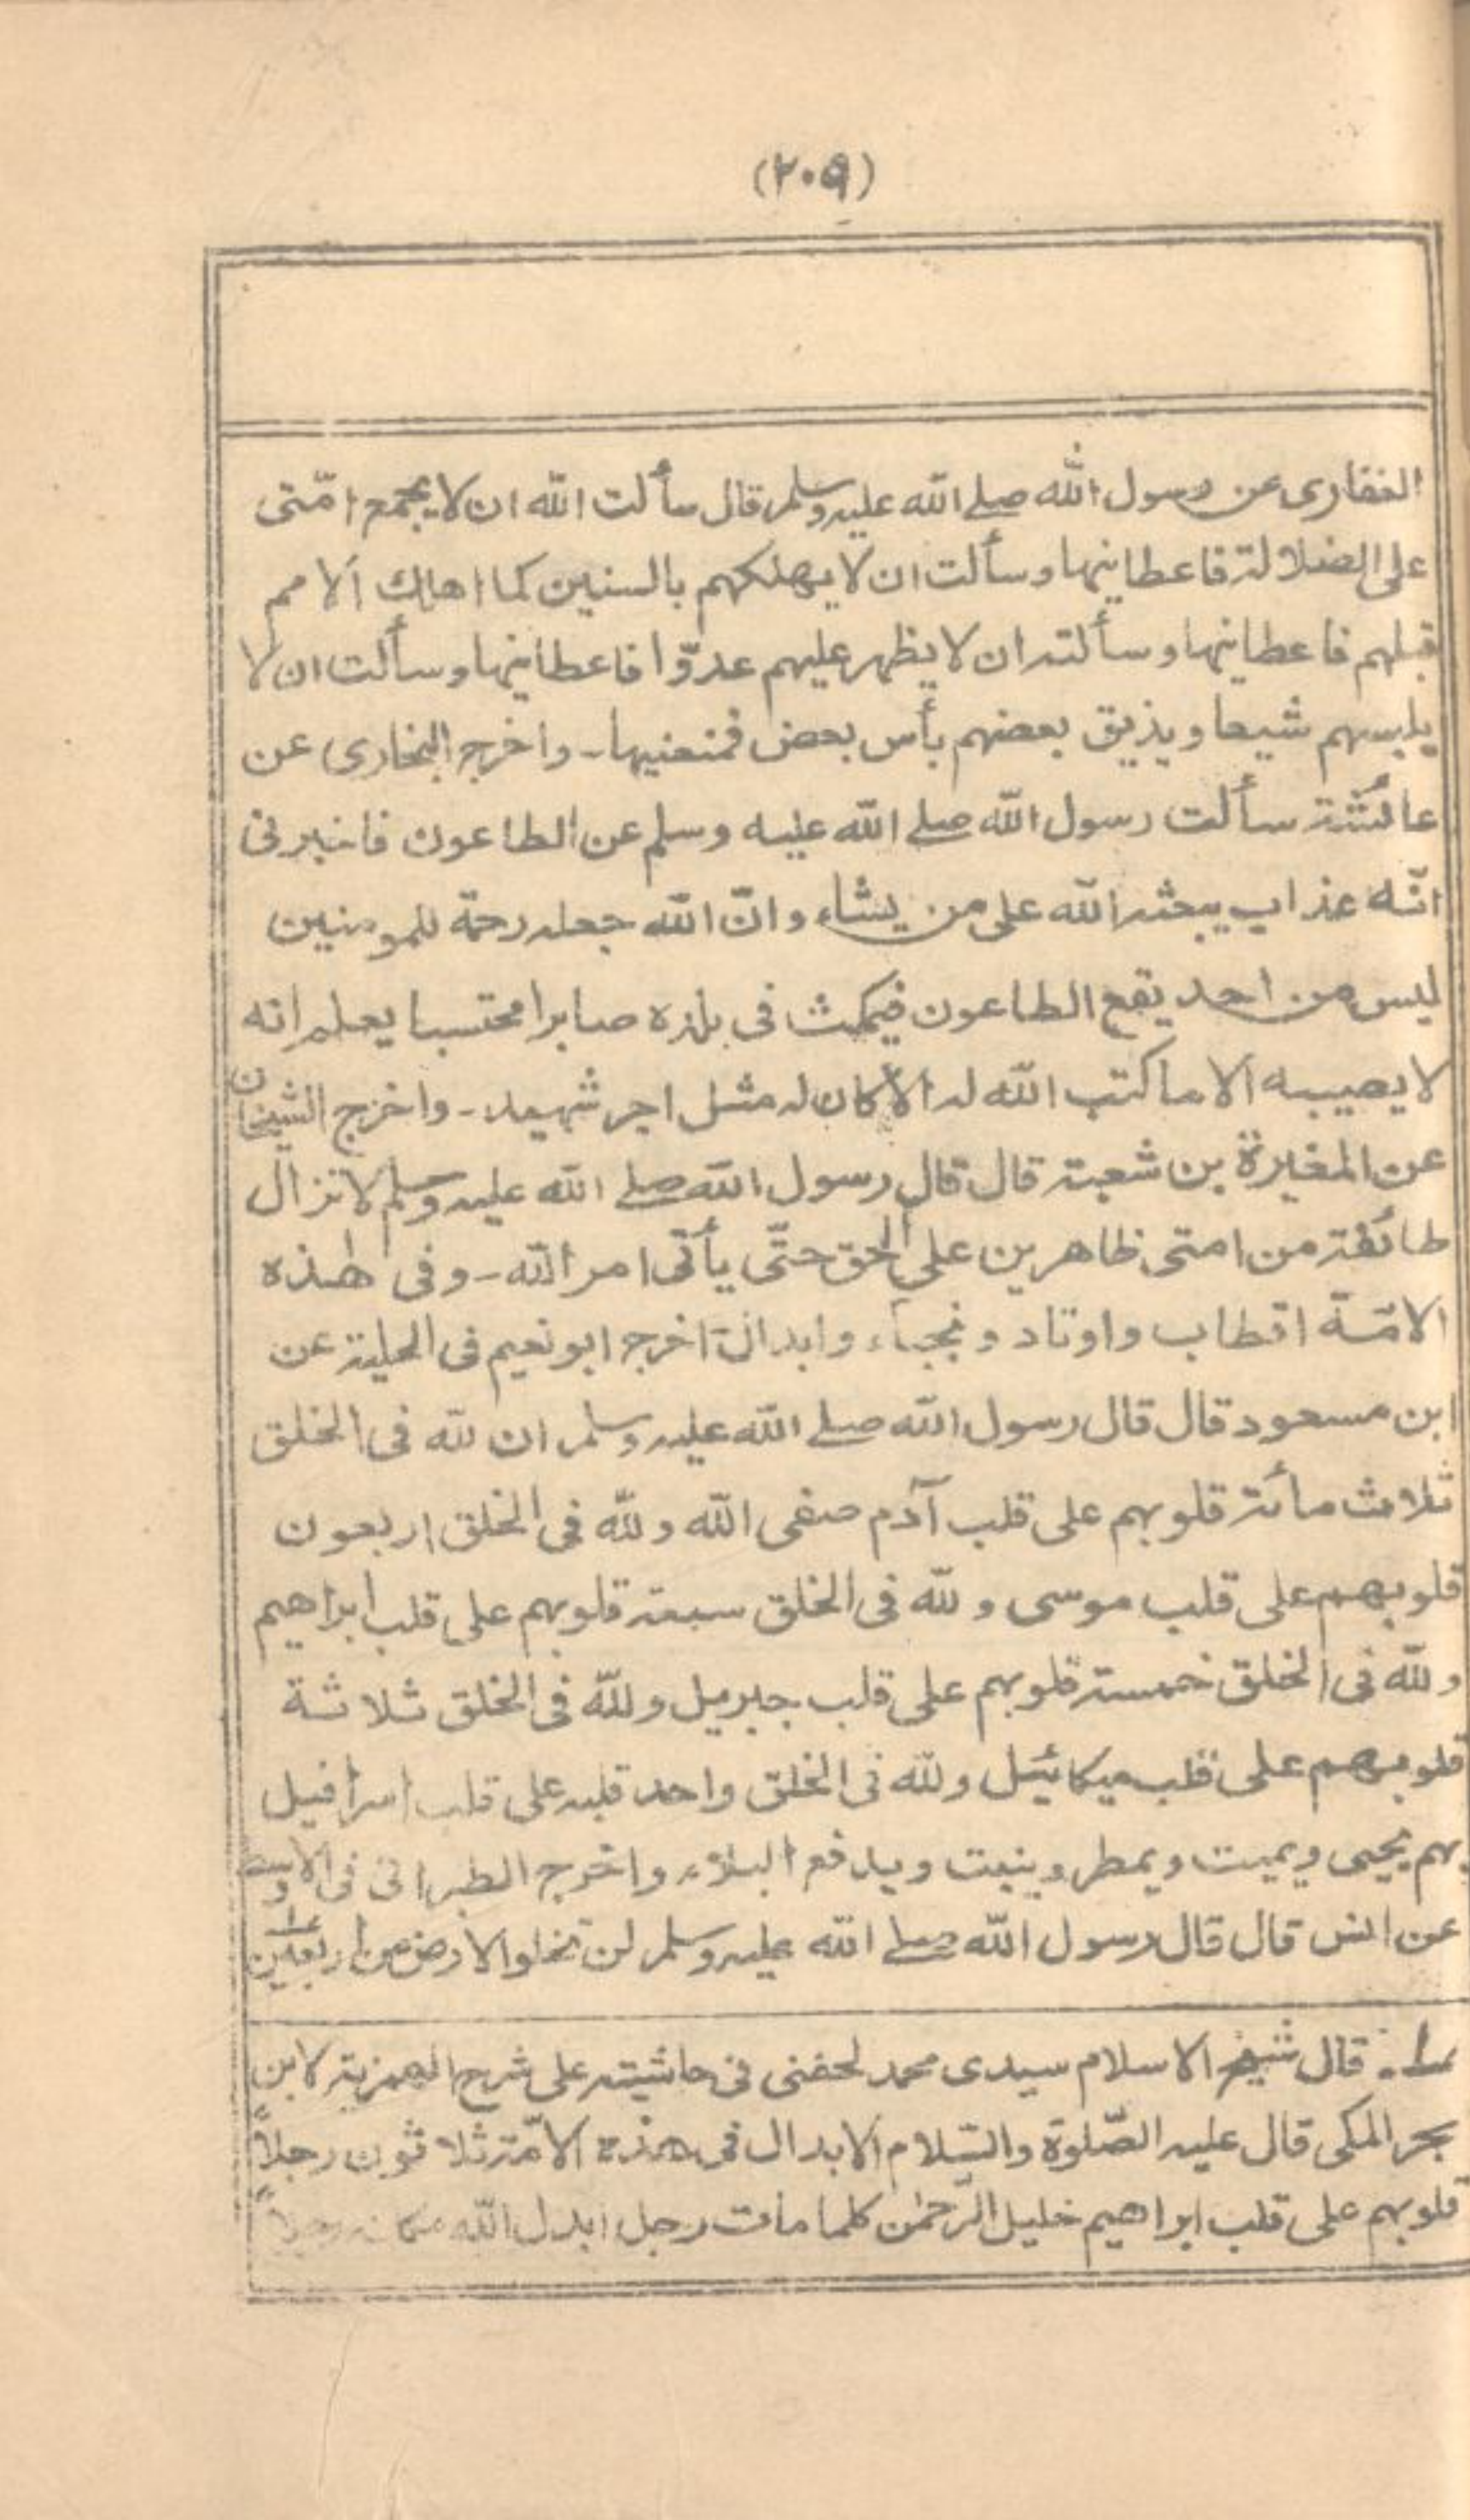 (٢٠٩)
الغفاری عن رسول الله صلے الله علیہ وسلم قال سألت الله ان لا یجمع امّتی
علی الضلالۃ فاعطانیہا وسألت ان لا یهلکہم بالسنین کما اهلك الامم
قبلہم فاعطانیہا وسألتہ ان لا یظہر علیہم عدوّا فاعطانیہا وسألت ان لا
یلبسہم شیعا ویذیق بعضہم بأس بعض فمنعنیہا۔ واخرج البخاری عن
عائشۃ سألت رسول الله صلے الله علیه وسلم عن الطاعون فاخبرنی
انّه عذاب یبعثہ الله علی من یشاء وانّ الله جعلہ رحمة للمومنین
لیس من احد یقع الطاعون فیمکث فی بلدہ صابرا محتسبا یعلم انه
لا یصیبه الا ما کتب الله لہ الا کان لہ مثل اجر شہید۔ واخرج الشیخان
عن المغیرة بن شعبۃ قال قال رسول الله صلے الله علیہ وسلم لا تزال
طائفۃ من امتی ظاهرین علی الحق حتّی یأتی امر الله۔ وفی هٰذه
الامّة اقطاب واوتاد ونجباء وابدال اخرج ابو نعیم فی الحلیۃ عن
ابن مسعود قال قال رسول الله صلے الله علیہ وسلم ان لله فی الخلق
ثلاث مأئۃ قلوبہم علی قلب آدم صفی الله ولله فی الخلق اربعون
قلوبهم علی قلب موسی ولله فی الخلق سبعۃ قلوبہم علی قلب ابراهیم
ولله فی الخلق خمسۃ قلوبہم علی قلب جبرئیل ولله فی الخلق ثلاثة
قلوبهم علی قلب میکائیل ولله فی الخلق واحد قلبہ علی قلب اسرافیل
بہم یحیی ویمیت ویمطر وینبت ویدفع البلاء واخرج الطبرانی فی الاوسط
عن انس قال قال رسول الله صلے الله علیہ وسلم لن تخلوا الارض من اربعین
قال شیخ الاسلام سیدی محمد لحفنی فی حاشیتہ علی شرح الهمزیۃ لابن
حجر المکی قال علیہ الصّلوٰة والسّلام الابدال فی هذه الامّۃ ثلاثون رجلاً
قلوبہم علی قلب ابراهیم خلیل الرّحمٰن کلما مات رجل ابدل الله مکانہ رجلاً